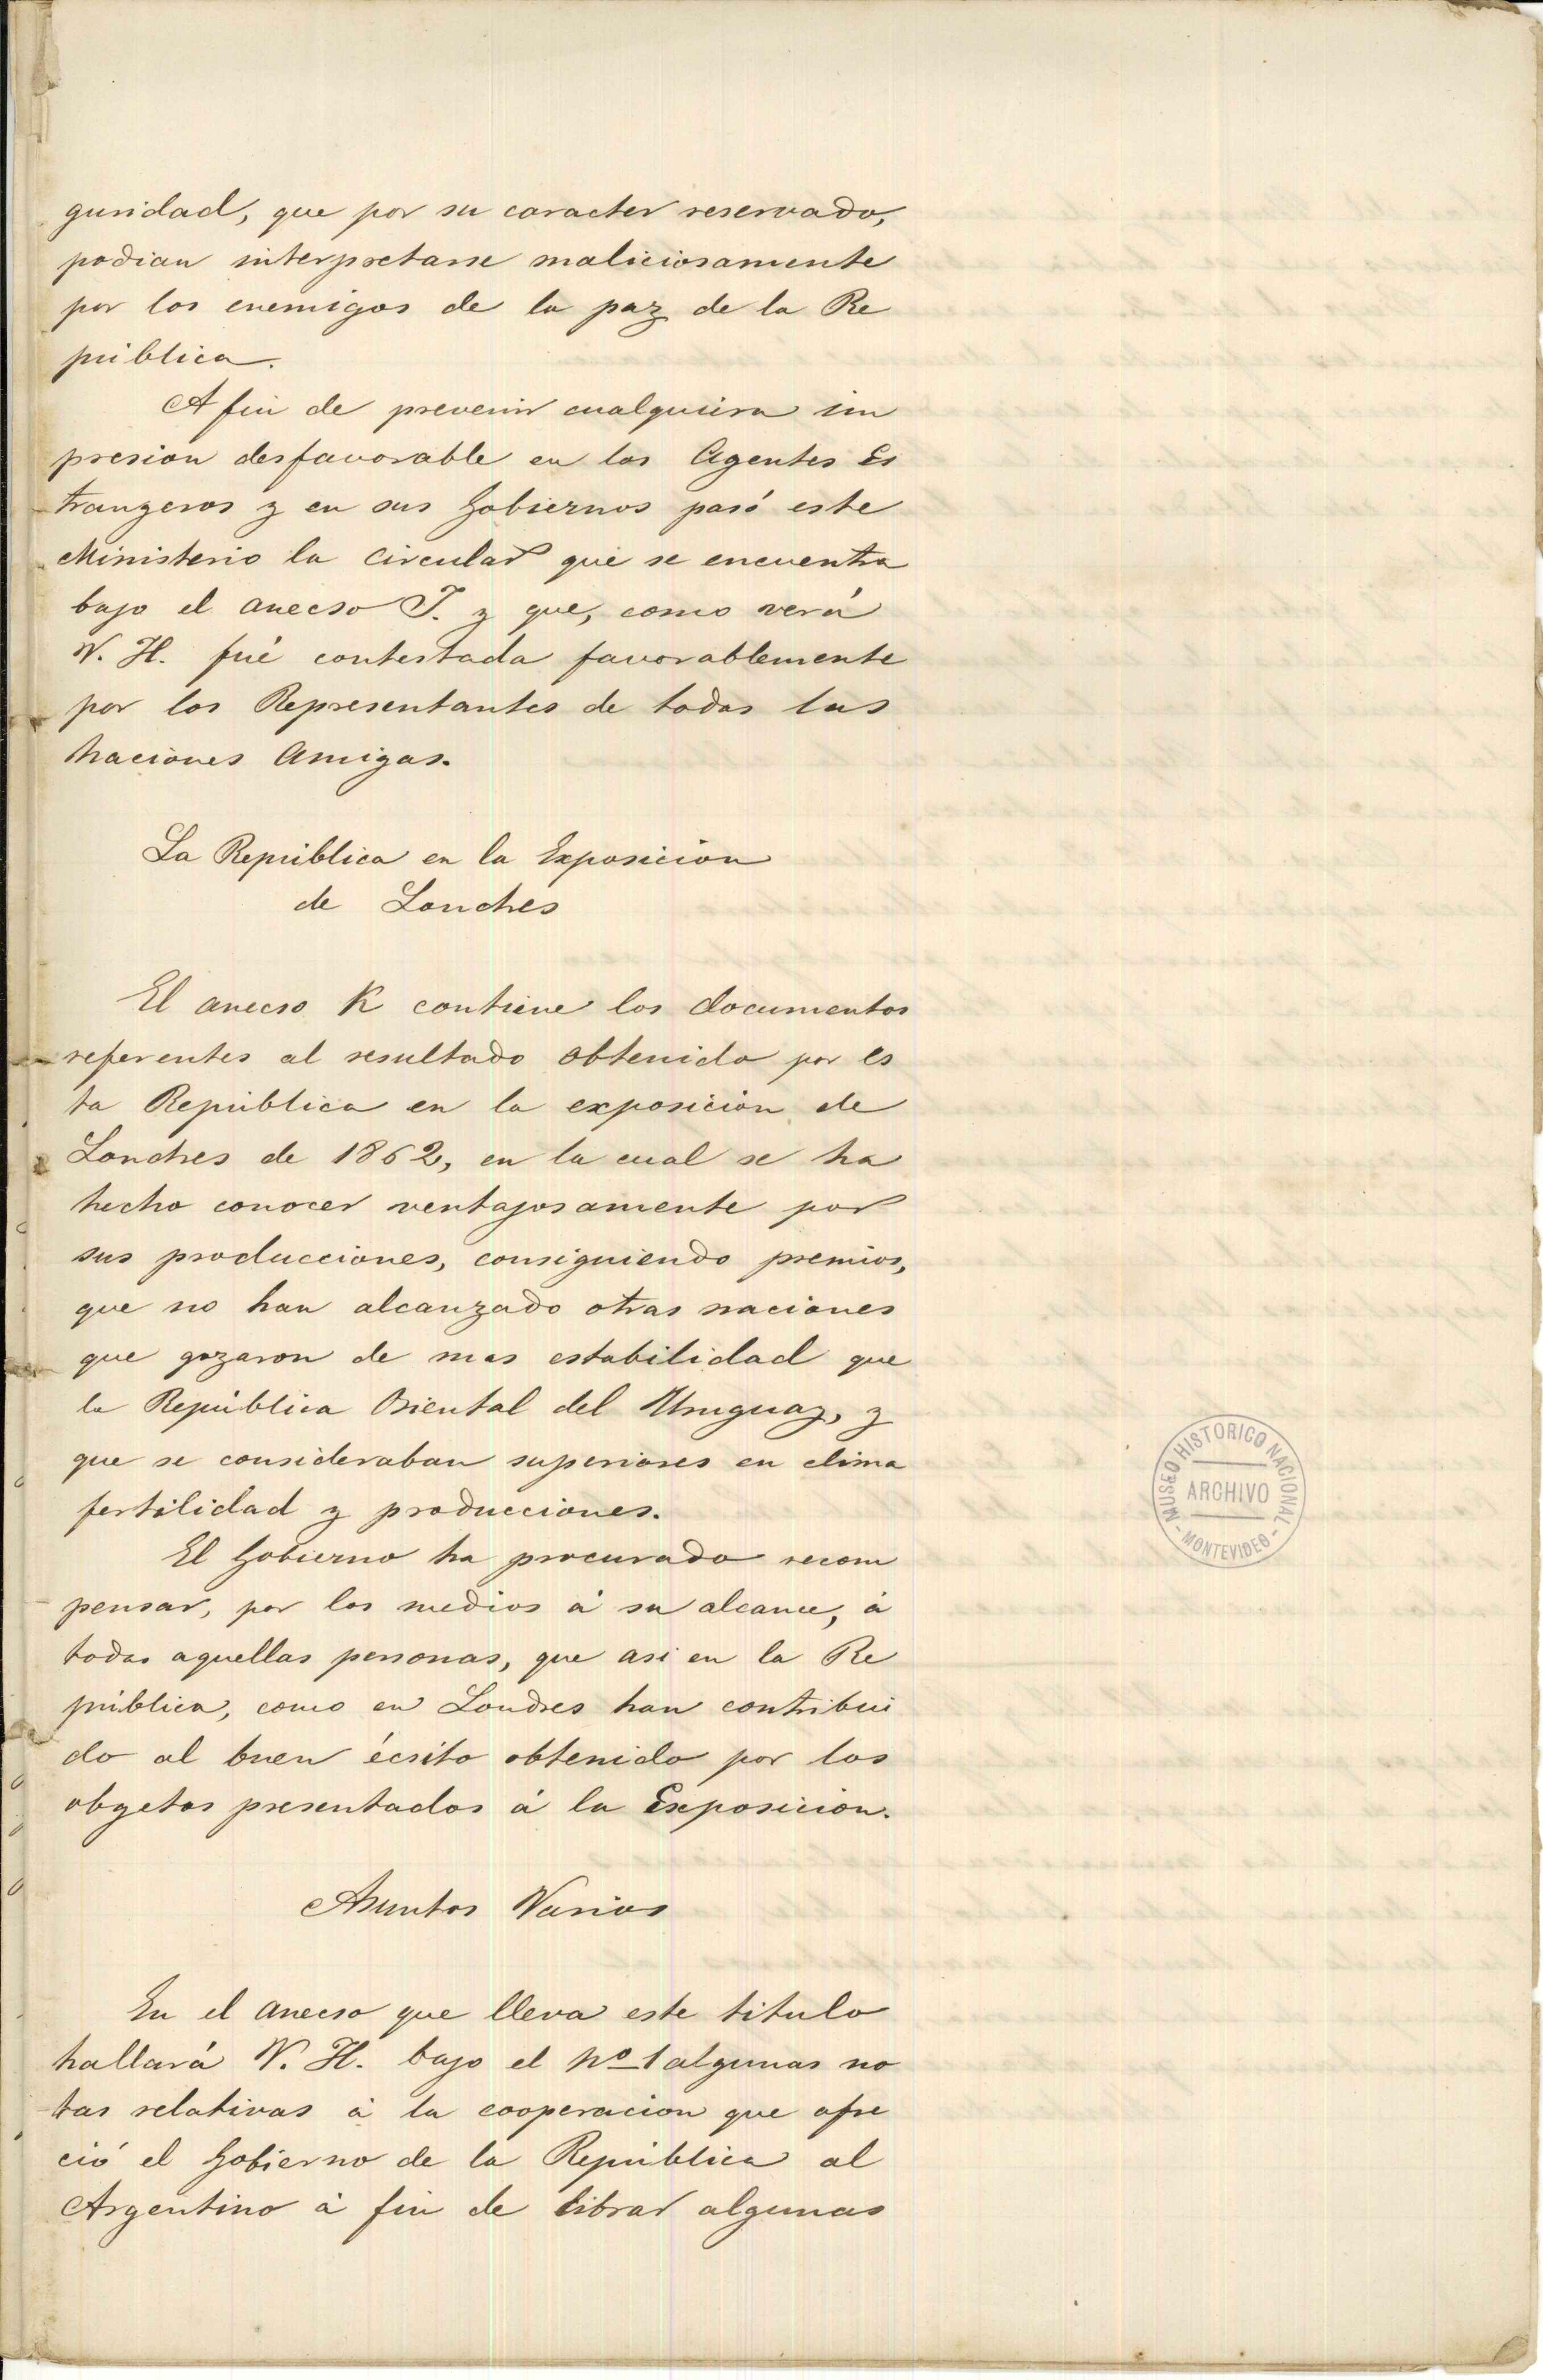 guridad, que por su caracter reservado,
podian interpretarse maliciosamente
por los enemigos de la paz de la Re
pública.
A fin de prevenir cualquiera im
presion desfavorable en los Agentes Es
trangeros y en sus Gobiernos pasó este
Ministerio la Circular que se encuentra
bajo el anecso J. y que, como verá
V. H. fué contestada favorablemente
por los Representantes de todas las
naciones Amigas.
La República en la Exposicion
de Londres
El anecso K contiene los documentos
referentes al resultado obtenido por es
ta República en la exposicion de
Londres de 1862, en la cual se ha
hecho conocer ventajosamente por
sus producciones, consiguiendo premios,
que no han alcanzado otras naciones
que gozaron de mas estabilidad que
la República Oriental del Uruguay, y
que se consideraban superiores en clima
fertilidad y producciones.
El Gobierno ha procurado recom
pensar, por los medios á su alcance, á
todas aquellas personas, que asi en la Re
pública, como en Londres han contribui
do al buen écsito obtenido por los
obgetos presentados á la Exposicion.
Asuntos Varios
En el anecso que lleva este titulo
hallará V. H. bajo el Nº 1 algunas no
tas relativas á la cooperacion que ofre
ció el Gobierno de la República al
Argentino á fin de librar algunas
MUSEO HISTORICO NACIONAL
ARCHIVO
- MONTEVIDEO -